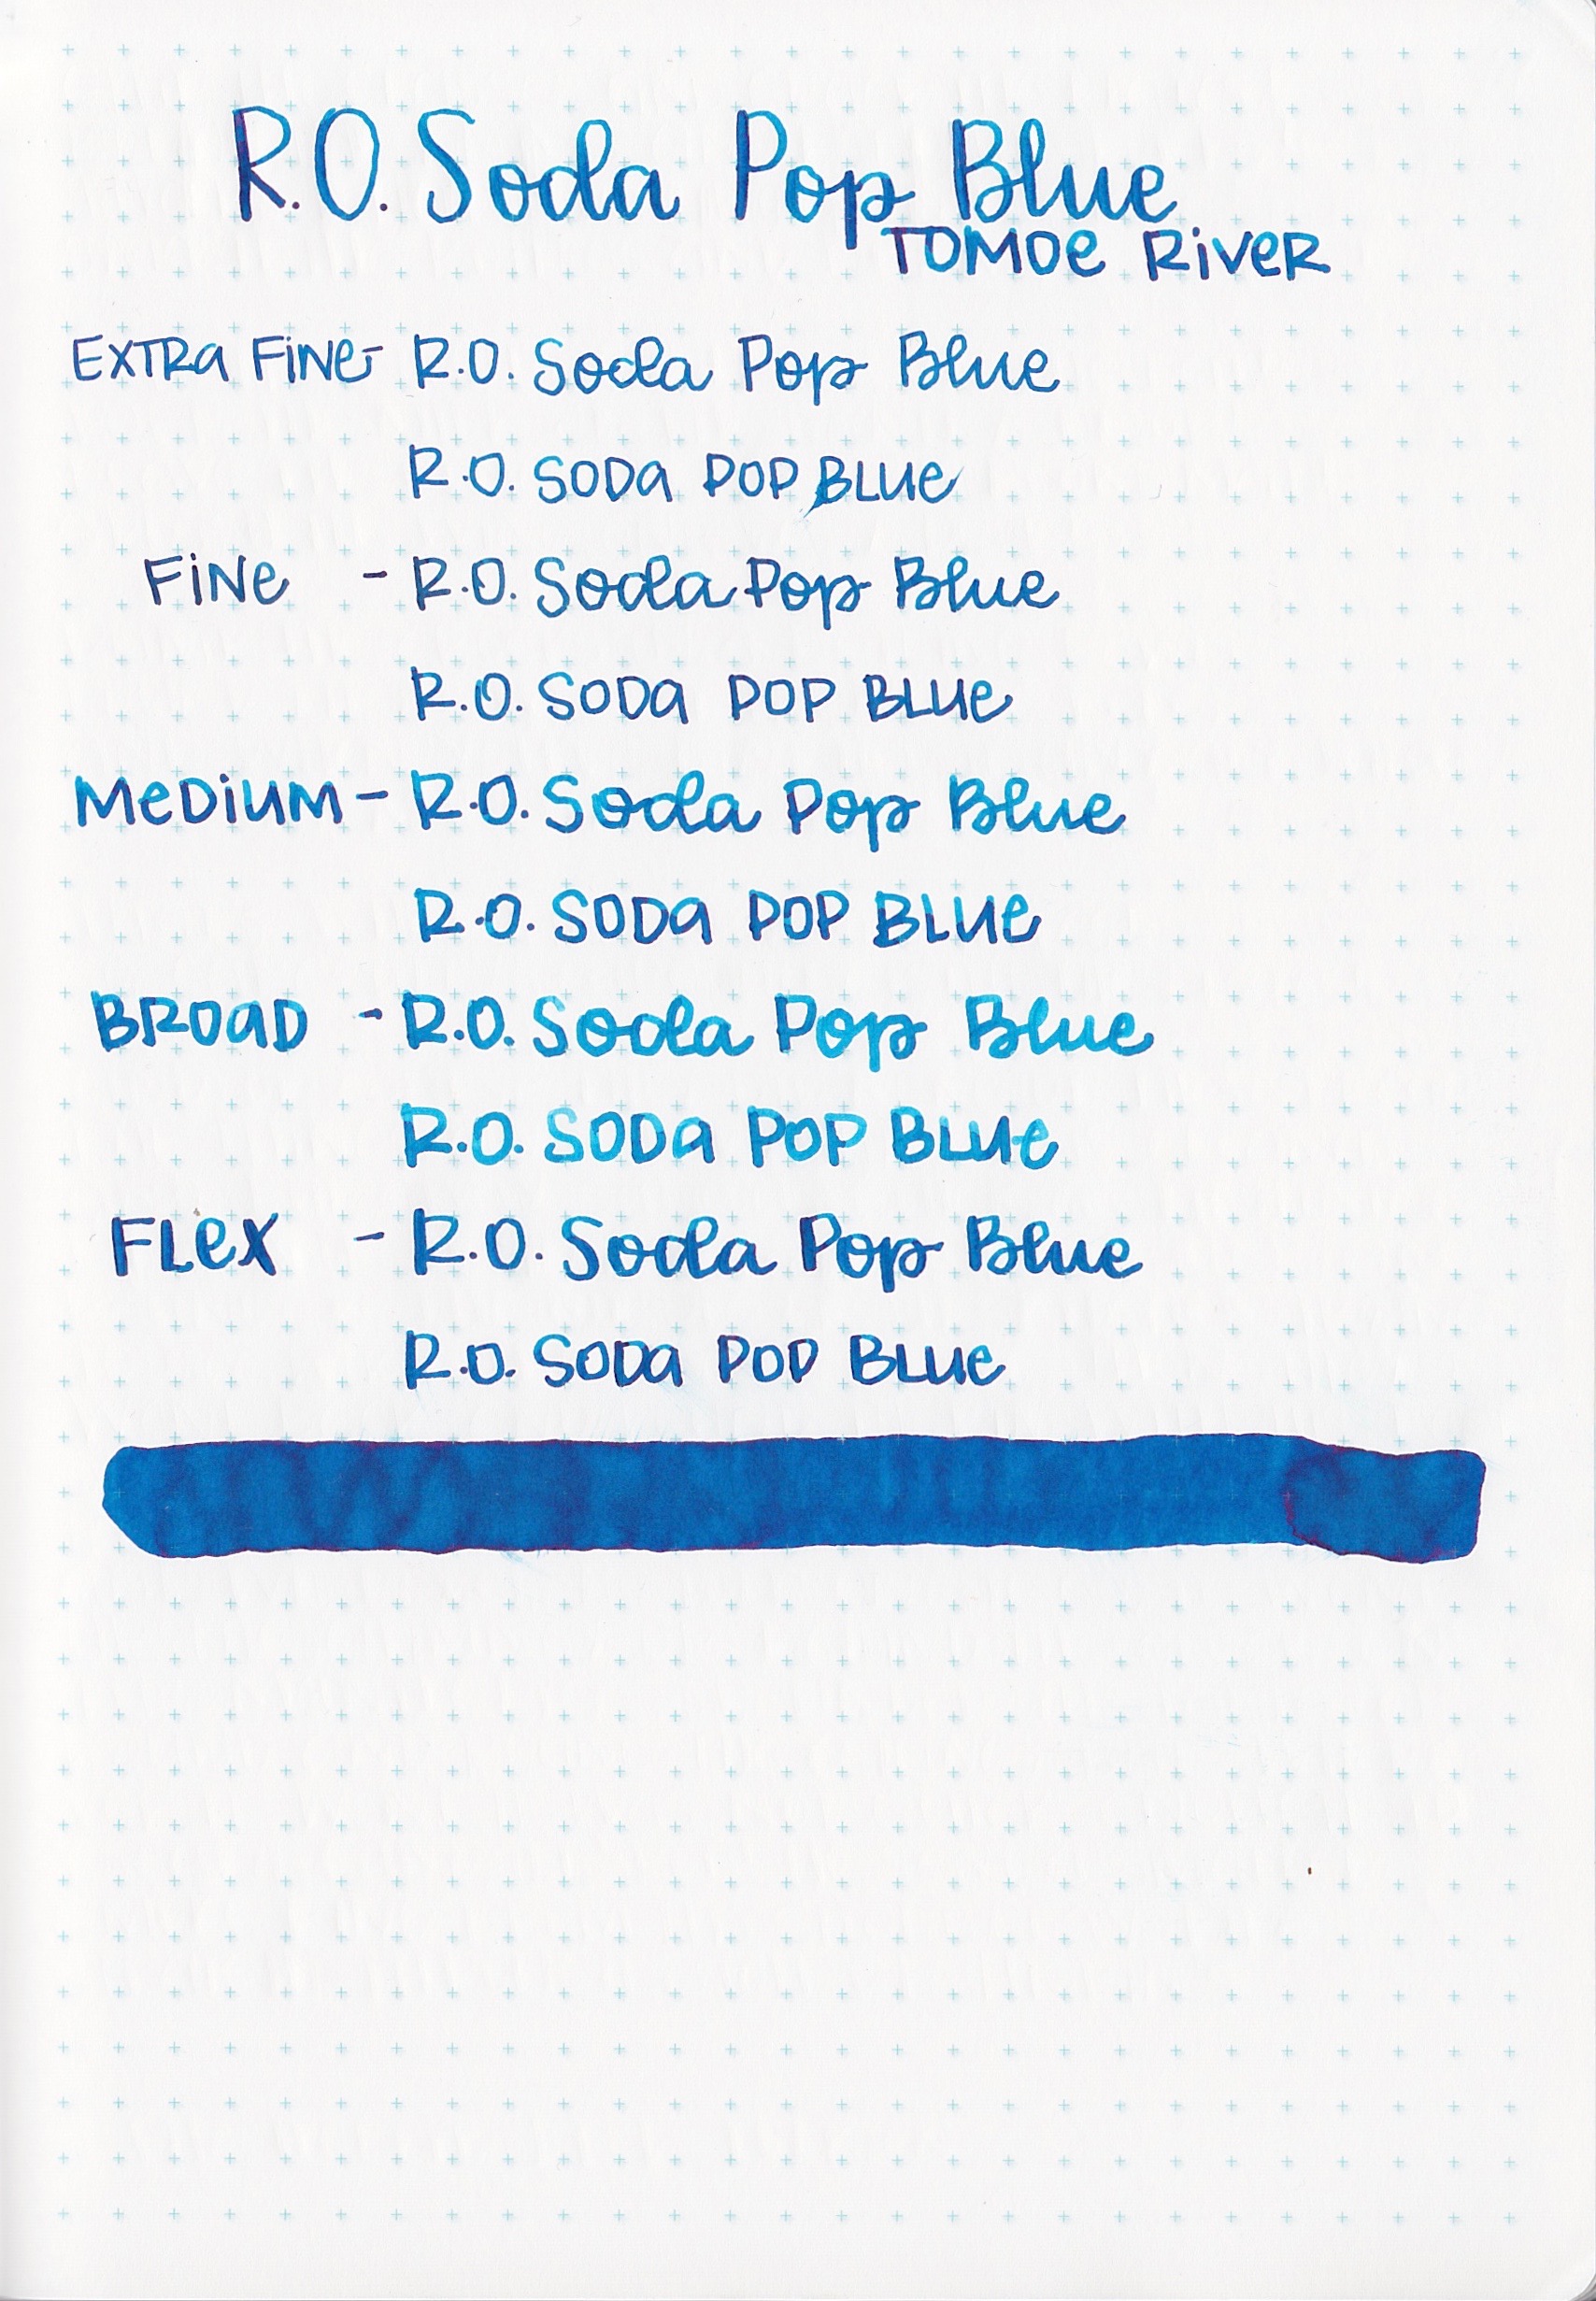 R.O. Soda Pop Blue
TOMOe RiveR
EXTRa FiNe- R.O. Soda Pop Blue
R.O. SODa POP BLue
FiNe - R.O. Soda Pop Blue
R.O. SODa POP BLue
MeDiuM - R.O. Soda Pop Blue
R.O. SODa POP BLue
BROaD - R.O. Soda Pop Blue
R.O. SODa POP BLue
FLeX - R.O. Soda Pop Blue
R.O. SODa POP BLue